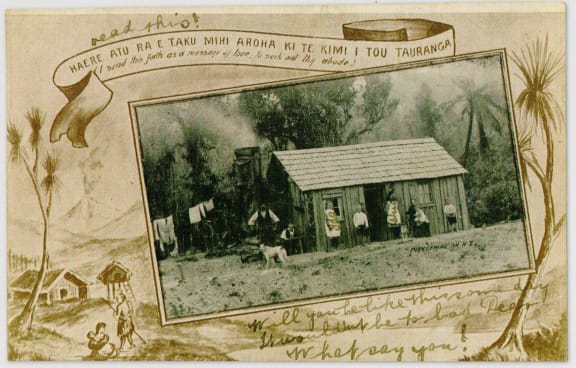 read this!
HAERE ATU RA E TAKU MIHI AROHA KI TE KIMI I TOU TAURANGA
(I send this forth as a message of love, to seek out thy abode.)
PIONEERING IN N.Z.
Will you be like this some day
It wouldnt be to bad Dear
What say you!